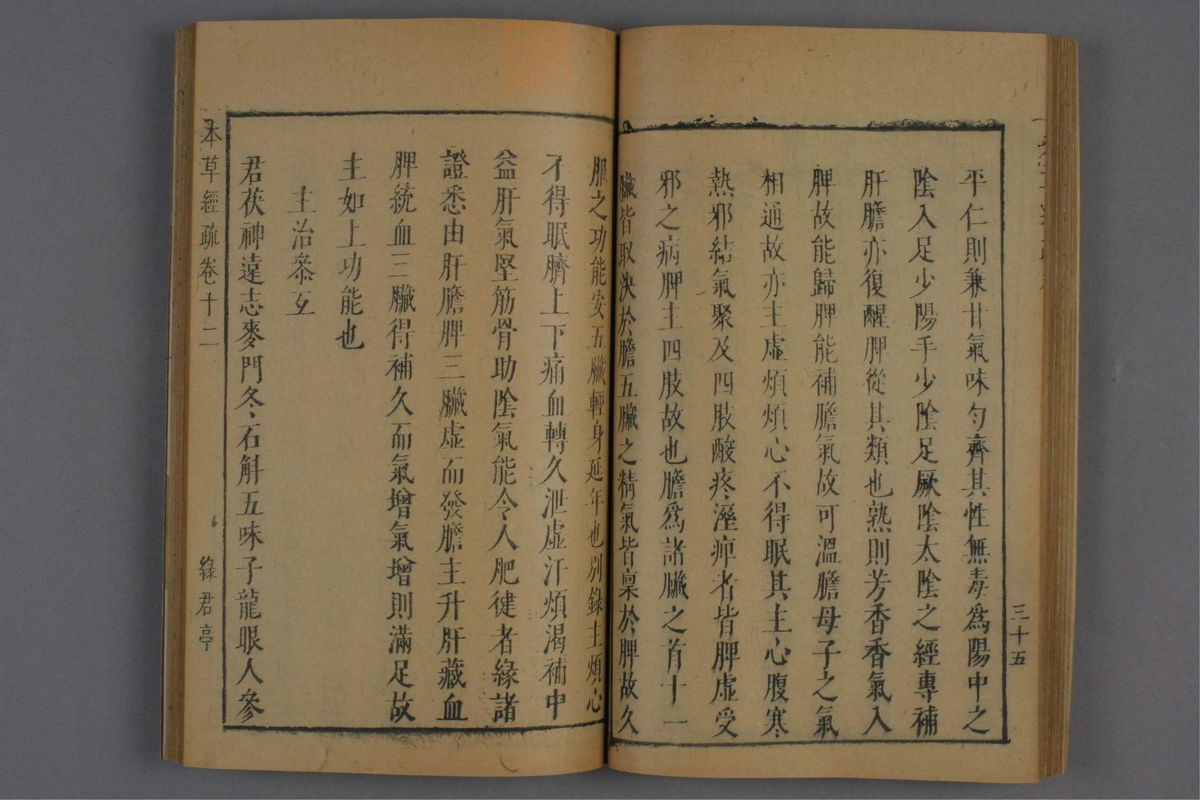 三十五
平仁則兼甘氣味勻齊其性無毒爲陽中之
陰入足少陽手少陰足厥陰太陰之經專補
肝膽亦復醒脾從其類也熟則芳香香氣入
脾故能歸脾能補膽氣故可溫膽母子之氣
相通故亦主虛煩煩心不得眠其主心腹寒
熱邪結氣聚及四肢酸疼溼痺者皆脾虛受
邪之病脾主四肢故也膽爲諸臟之首十一
臟皆取決於膽五臟之精氣皆稟於脾故久
服之功能安五臟輕身延年也別錄主煩心
不得眠臍上下痛血轉久泄虛汗煩渴補中
益肝氣堅筋骨助陰氣能令人肥健者緣諸
證悉由肝膽脾三臟虛而發膽主升肝藏血
脾統血三臟得補久而氣增氣增則滿足故
主如上功能也
主治叅互
君茯神遠志麥門冬石斛五味子龍眼人參
本草經疏卷十二
綠君亭